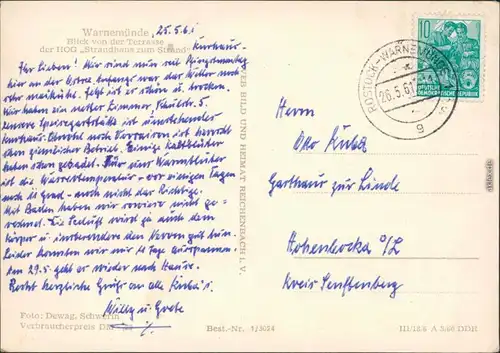 Warnemünde
25.5.61
Blick von der Terrasse
der HOG „Strandhaus zum Strand"
Kurhaus.
Ihr Lieben! Wir sind nun seit Pfingstmontag
hier an der Ostsee. Anfangs war das Wetter noch
sehr maikühl. Jetzt ist es schön u. trocken.
Wir haben ein nettes Zimmer, Schülerstr. 5.
Unsere Speisegaststätte ist umstehendes
Kurhaus. Obwohl noch Vorsaison ist herrscht
schon ziemlicher Betrieb. Einige Kaltblüter
haben schon gebadet. Für uns Warmblüter
ist die Wassertemperatur – vor einigen Tagen
noch 11 Grad – noch nicht das Richtige.
Mit Baden haben wir sowieso nicht ge-
rechnet. Die Seeluft wird ja auch dem
Körper u. insbesondere den Nerven gut tun.
Leider konnten wir nur 14 Tage ausspannen.
Am 29.5. geht es wieder nach Hause.
Recht herzliche Grüße an alle Kuba's.
Willy u. Grete
Foto: Dewag, Schwerin
Verbraucherpreis DM
Best.-Nr. 1/3024
VEB BILD UND HEIMAT REICHENBACH I. V.
ROSTOCK-WARNEMÜNDE
26.5.61
g
10
DEUTSCHE
DEMOKRATISCHE REPUBLIK
Otto Kuba
Gasthaus zur Linde
Hohenbocka O/L
Kreis Senftenberg
III/18/6 A 5/60 DDR